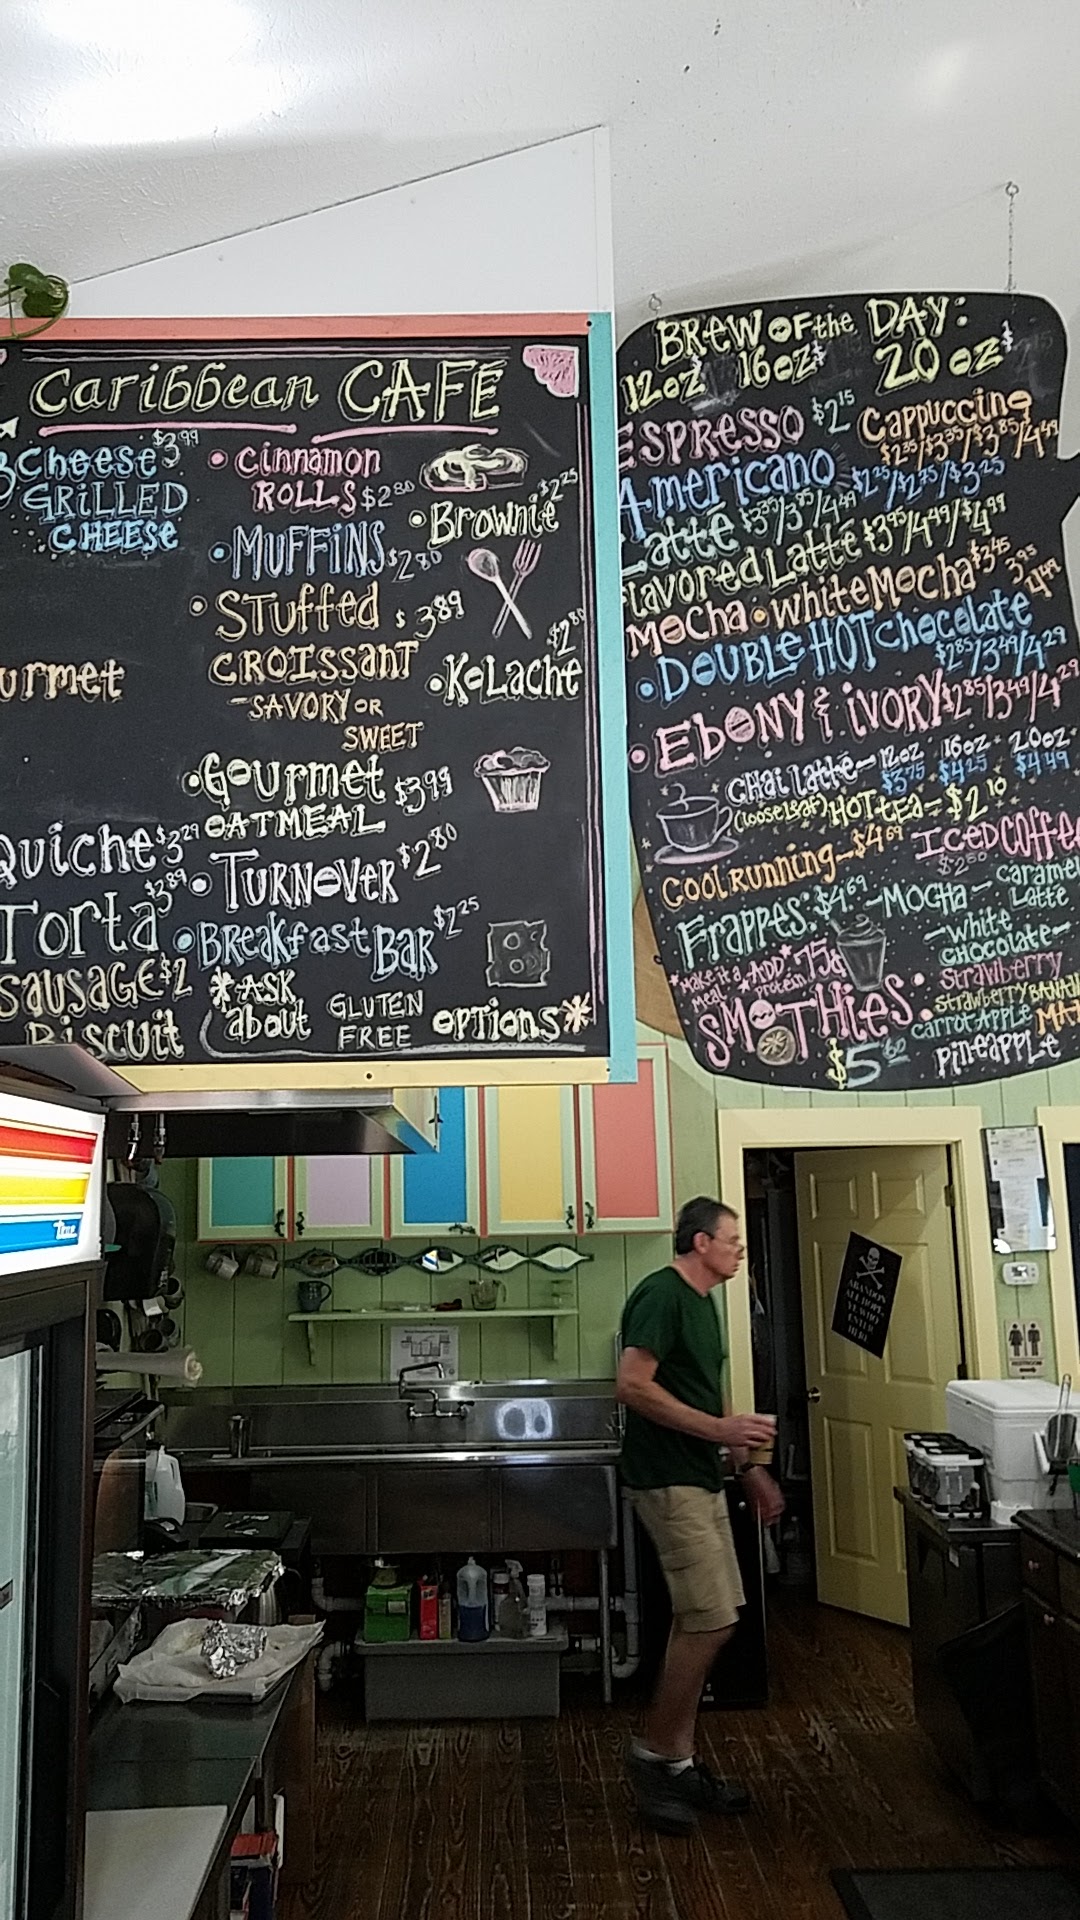 Caribbean CAFE
3 Cheese $3.99
GRILLED
CHEESE
• Cinnamon
ROLLS $2.80
• Brownie $2.25
• MUFFINS $2.80
• STuffed $3.89
CROISSanT
-SAVORY OR
SWEET
• KoLache $2.80
urmet
• Gourmet $3.99
OATMEAL
Quiche $3.29
• TURNOVER $2.80
Torta $2.89
• BREakfast BAR $2.25
SAUSAGE $2
Biscuit
*ASK
about
GLUTEN
FREE
OPTIONS*
BREW OF the DAY:
12oz 16oz $ 20oz $
ESPRESSO $2.15
Cappuccino
$2.85/$3.35/$3.85/4.49
Americano $2.25/$2.75/$3.25
Latté $3.35/3.95/4.49
Flavored Latté $3.95/4.49/$4.99
Mocha • White Mocha $3.45 3.95 4.49
• DOUBLE HOT chocolate
$2.85/3.49/4.29
• EbONY & iVORY $2.85/3.49/4.29
CHai latté- 12oz 16oz 20oz
$3.75 $4.25 $4.49
(Looseleaf) HOT tea = $2.10
COOL RUNNING - $4.69
ICED COffee
$2.80
Frappes: $4.69 - MOCHA - caramel
Latte
-white
chocolate-
*Make it a Meal *ADD* protein 75¢
SMOOTHies:
$5.60
Strawberry
Strawberry BANAN
carrot APPLE MA
pineapple
Time
ABANDON
ALL HOPE
YE WHO
ENTER
HERE
RESTROOM